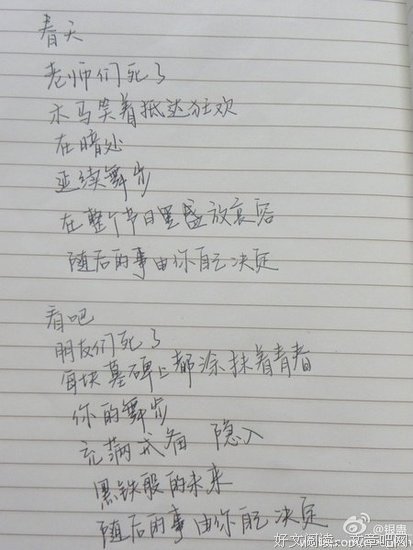 春天
老师们死了
木马笑着抵达狂欢
在暗处
延续舞步
在整个节日里盛放哀悼
随后的事由你自己决定
看吧
朋友们死了
每块墓碑上都涂抹着青春
你的舞步
充满 隐入
黑铁般的未来
随后的事由你自己决定
好文阅读 文章吧网